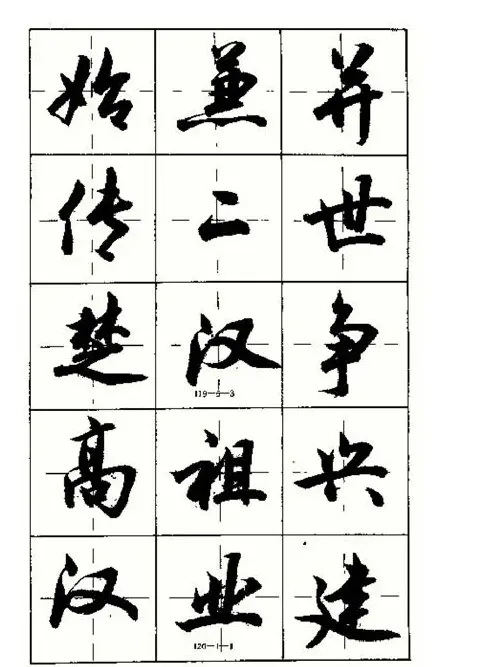 始兼并
传二世
楚汉争
119—5—3
高祖兴
汉业建
120—1—1